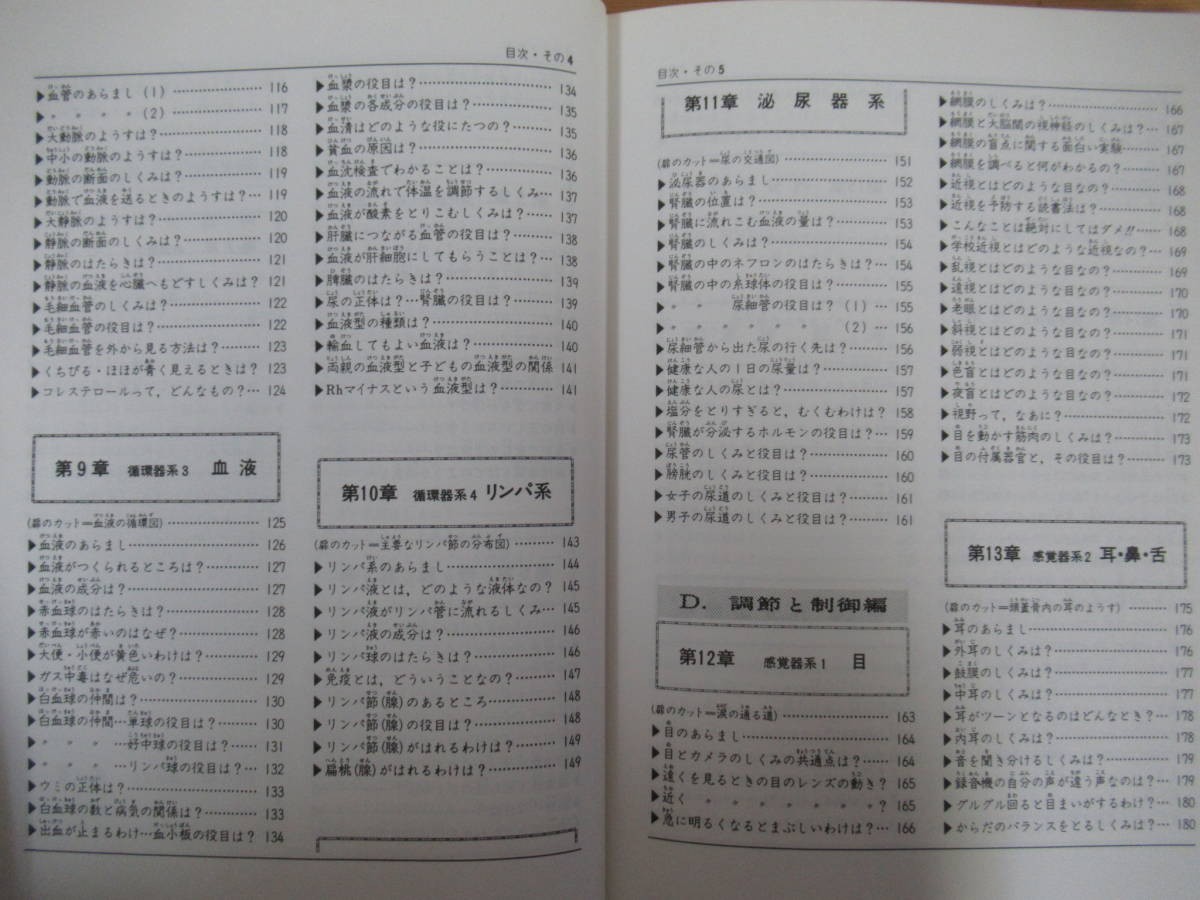 目次・その4
▶血管のあらまし (1) ……………… 116
▶〃 〃 〃 〃 (2) ……………… 117
▶大動脈のようすは？……………… 118
▶中小の動脈のようすは？………… 118
▶動脈の断面のしくみは？………… 119
▶動脈で血液を送るときのようすは？… 119
▶大静脈のようすは？……………… 120
▶静脈の断面のしくみは？………… 120
▶静脈のはたらきは？……………… 121
▶静脈の血液を心臓へもどすしくみは？ 121
▶毛細血管のしくみは？…………… 122
▶毛細血管の役目は？……………… 122
▶毛細血管を外から見る方法は？…… 123
▶くちびる・ほほが青く見えるときは？ 123
▶コレステロールって，どんなもの？… 124
第9章 循環器系3 血液
(扉のカット=血液の循環図) …………… 125
▶血液のあらまし…………………… 126
▶血液がつくられるところは？……… 127
▶血液の成分は？…………………… 127
▶赤血球のはたらきは？…………… 128
▶赤血球が赤いのはなぜ？………… 128
▶大便・小便が黄色いわけは？…… 129
▶ガス中毒はなぜ危いの？………… 129
▶白血球の仲間は？………………… 130
▶白血球の仲間…単球の役目は？…… 130
▶〃 〃 〃 …好中球の役目は？…… 131
▶〃 〃 〃 …リンパ球の役目は？… 132
▶ウミの正体は？…………………… 133
▶白血球の数と病気の関係は？……… 133
▶出血が止まるわけ…血小板の役目は？ 134
▶血漿の役目は？…………………… 134
▶血漿の各成分の役目は？………… 135
▶血清はどのような役にたつの？…… 135
▶貧血の原因は？…………………… 136
▶血沈検査でわかることは？……… 136
▶血液の流れで体温を調節するしくみ… 137
▶血液が酸素をとりこむしくみは？… 137
▶肝臓につながる血管の役目は？…… 138
▶血液が肝細胞にしてもらうことは？… 138
▶脾臓のはたらきは？……………… 139
▶尿の正体は？…腎臓の役目は？…… 139
▶血液型の種類は？………………… 140
▶輸血してもよい血液は？………… 140
▶両親の血液型と子どもの血液型の関係 141
▶Rhマイナスという血液型は？……… 141
第10章 循環器系4 リンパ系
(扉のカット=主要なリンパ節の分布図)……… 143
▶リンパ系のあらまし……………… 144
▶リンパ液とは，どのような液体なの？ 144
▶リンパ液がリンパ管に流れるしくみ… 145
▶リンパ液の成分は？……………… 146
▶リンパ球のはたらきは？………… 146
▶免疫とは，どういうことなの？…… 147
▶リンパ節(腺)のあるところ……… 148
▶リンパ節(腺)の役目は？………… 148
▶リンパ節(腺)がはれるわけは？…… 149
▶扁桃(腺)がはれるわけは？……… 149
目次・その5
第11章 泌尿器系
(扉のカット=尿の交通図)……………… 151
▶泌尿器のあらまし………………… 152
▶腎臓の位置は？…………………… 153
▶腎臓に流れこむ血液の量は？…… 153
▶腎臓のしくみは？………………… 154
▶腎臓の中のネフロンのはたらきは？… 154
▶腎臓の中の糸球体の役目は？…… 155
▶〃 〃 尿細管の役目は？ (1) … 155
▶〃 〃 〃 〃 〃 〃 (2) … 156
▶尿細管から出た尿の行く先は？…… 156
▶健康な人の1日の尿量は？………… 157
▶健康な人の尿とは？……………… 157
▶塩分をとりすぎると，むくむわけは？ 158
▶腎臓が分泌するホルモンの役目は？… 159
▶尿管のしくみと役目は？………… 160
▶膀胱のしくみと役目は？………… 160
▶女子の尿道のしくみと役目は？…… 161
▶男子の尿道のしくみと役目は？…… 161
D. 調節と制御編
第12章 感覚器系1 目
(扉のカット=涙の通る道)……………… 163
▶目のあらまし……………………… 164
▶目とカメラのしくみの共通点は？… 164
▶遠くを見るときの目のレンズの動き？ 165
▶近く 〃 〃 〃 〃 〃 〃 〃 ？ 165
▶急に明るくなるとまぶしいわけは？… 166
▶網膜のしくみは？………………… 166
▶網膜と大脳間の視神経のしくみは？… 167
▶網膜の盲点に関する面白い実験…… 167
▶網膜を調べると何がわかるの？…… 167
▶近視とはどのような目なの？……… 168
▶近視を予防する読書法は？……… 168
▶こんなことは絶対にしてはダメ!!…… 168
▶学校近視とはどのような近視なの？… 169
▶乱視とはどのような目なの？……… 169
▶遠視とはどのような目なの？……… 170
▶老眼とはどのような目なの？……… 170
▶斜視とはどのような目なの？……… 171
▶弱視とはどのような目なの？……… 171
▶色盲とはどのような目なの？……… 171
▶夜盲とはどのような目なの？……… 172
▶視野って，なあに？……………… 172
▶目を動かす筋肉のしくみは？……… 173
▶目の付属器官と，その役目は？…… 173
第13章 感覚器系2 耳・鼻・舌
(扉のカット=頭蓋骨内の耳のようす)……… 175
▶耳のあらまし……………………… 176
▶外耳のしくみは？………………… 176
▶鼓膜のしくみは？………………… 177
▶中耳のしくみは？………………… 177
▶耳がツーンとなるのはどんなとき？… 178
▶内耳のしくみは？………………… 178
▶音を聞き分けるしくみは？……… 179
▶録音機の自分の声が違う声なのは？… 179
▶グルグル回ると目まいがするわけ？… 180
▶からだのバランスをとるしくみは？… 180